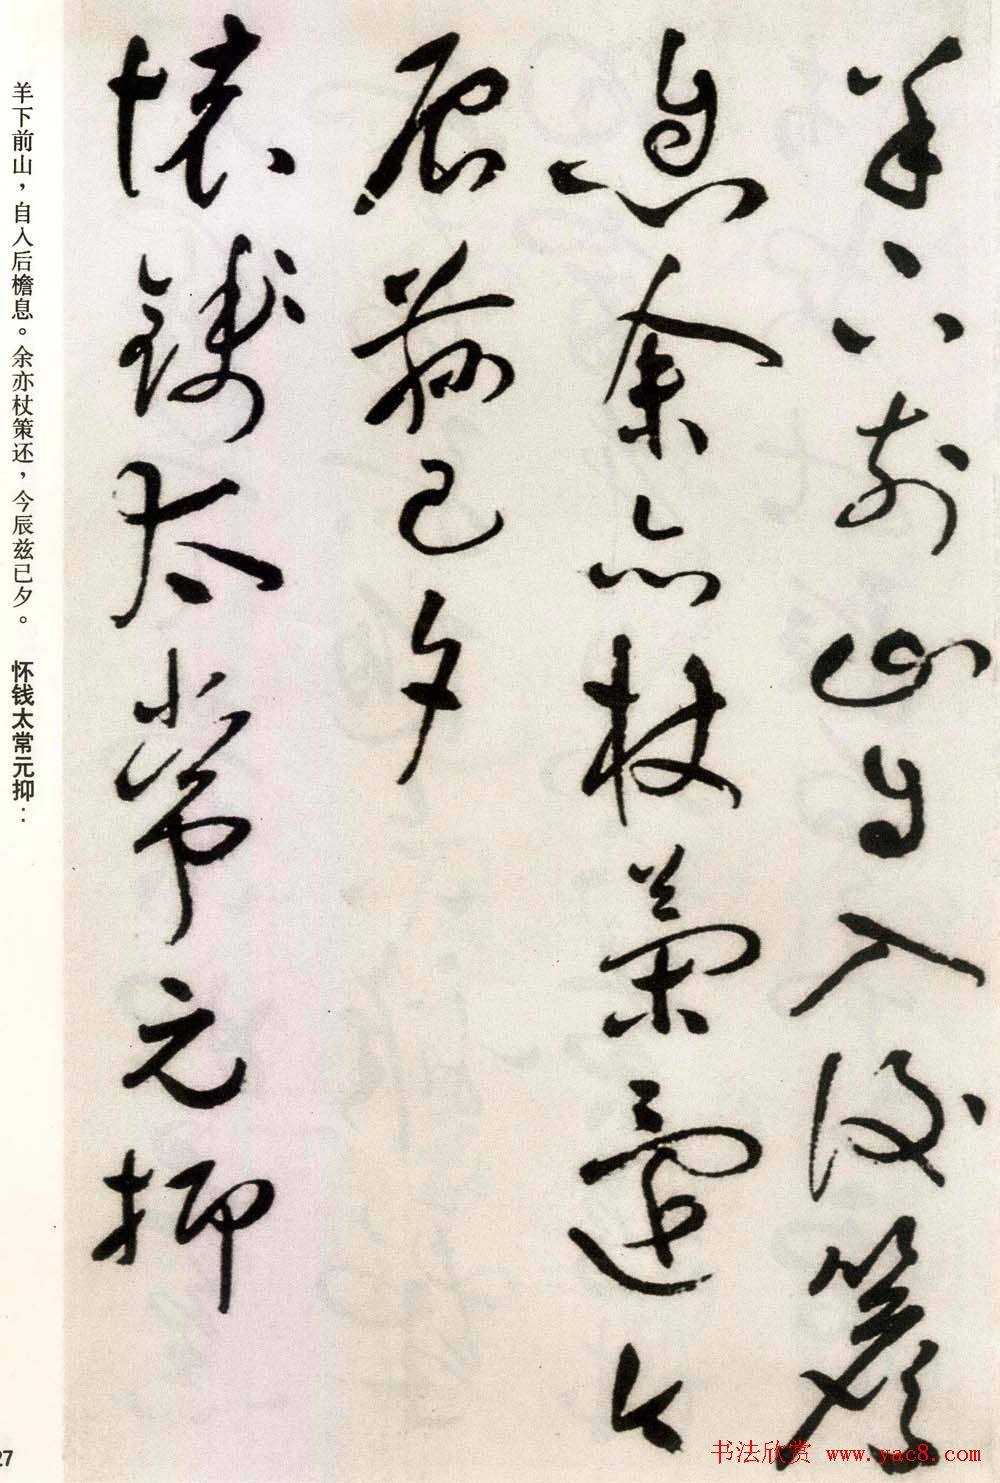 羊下前山自入後簷
息余亦杖策還今
辰茲已夕
懷錢太常元抑
羊下前山，自入后檐息。余亦杖策还，今辰兹已夕。　怀钱太常元抑：
27
书法欣赏 www.yac8.com